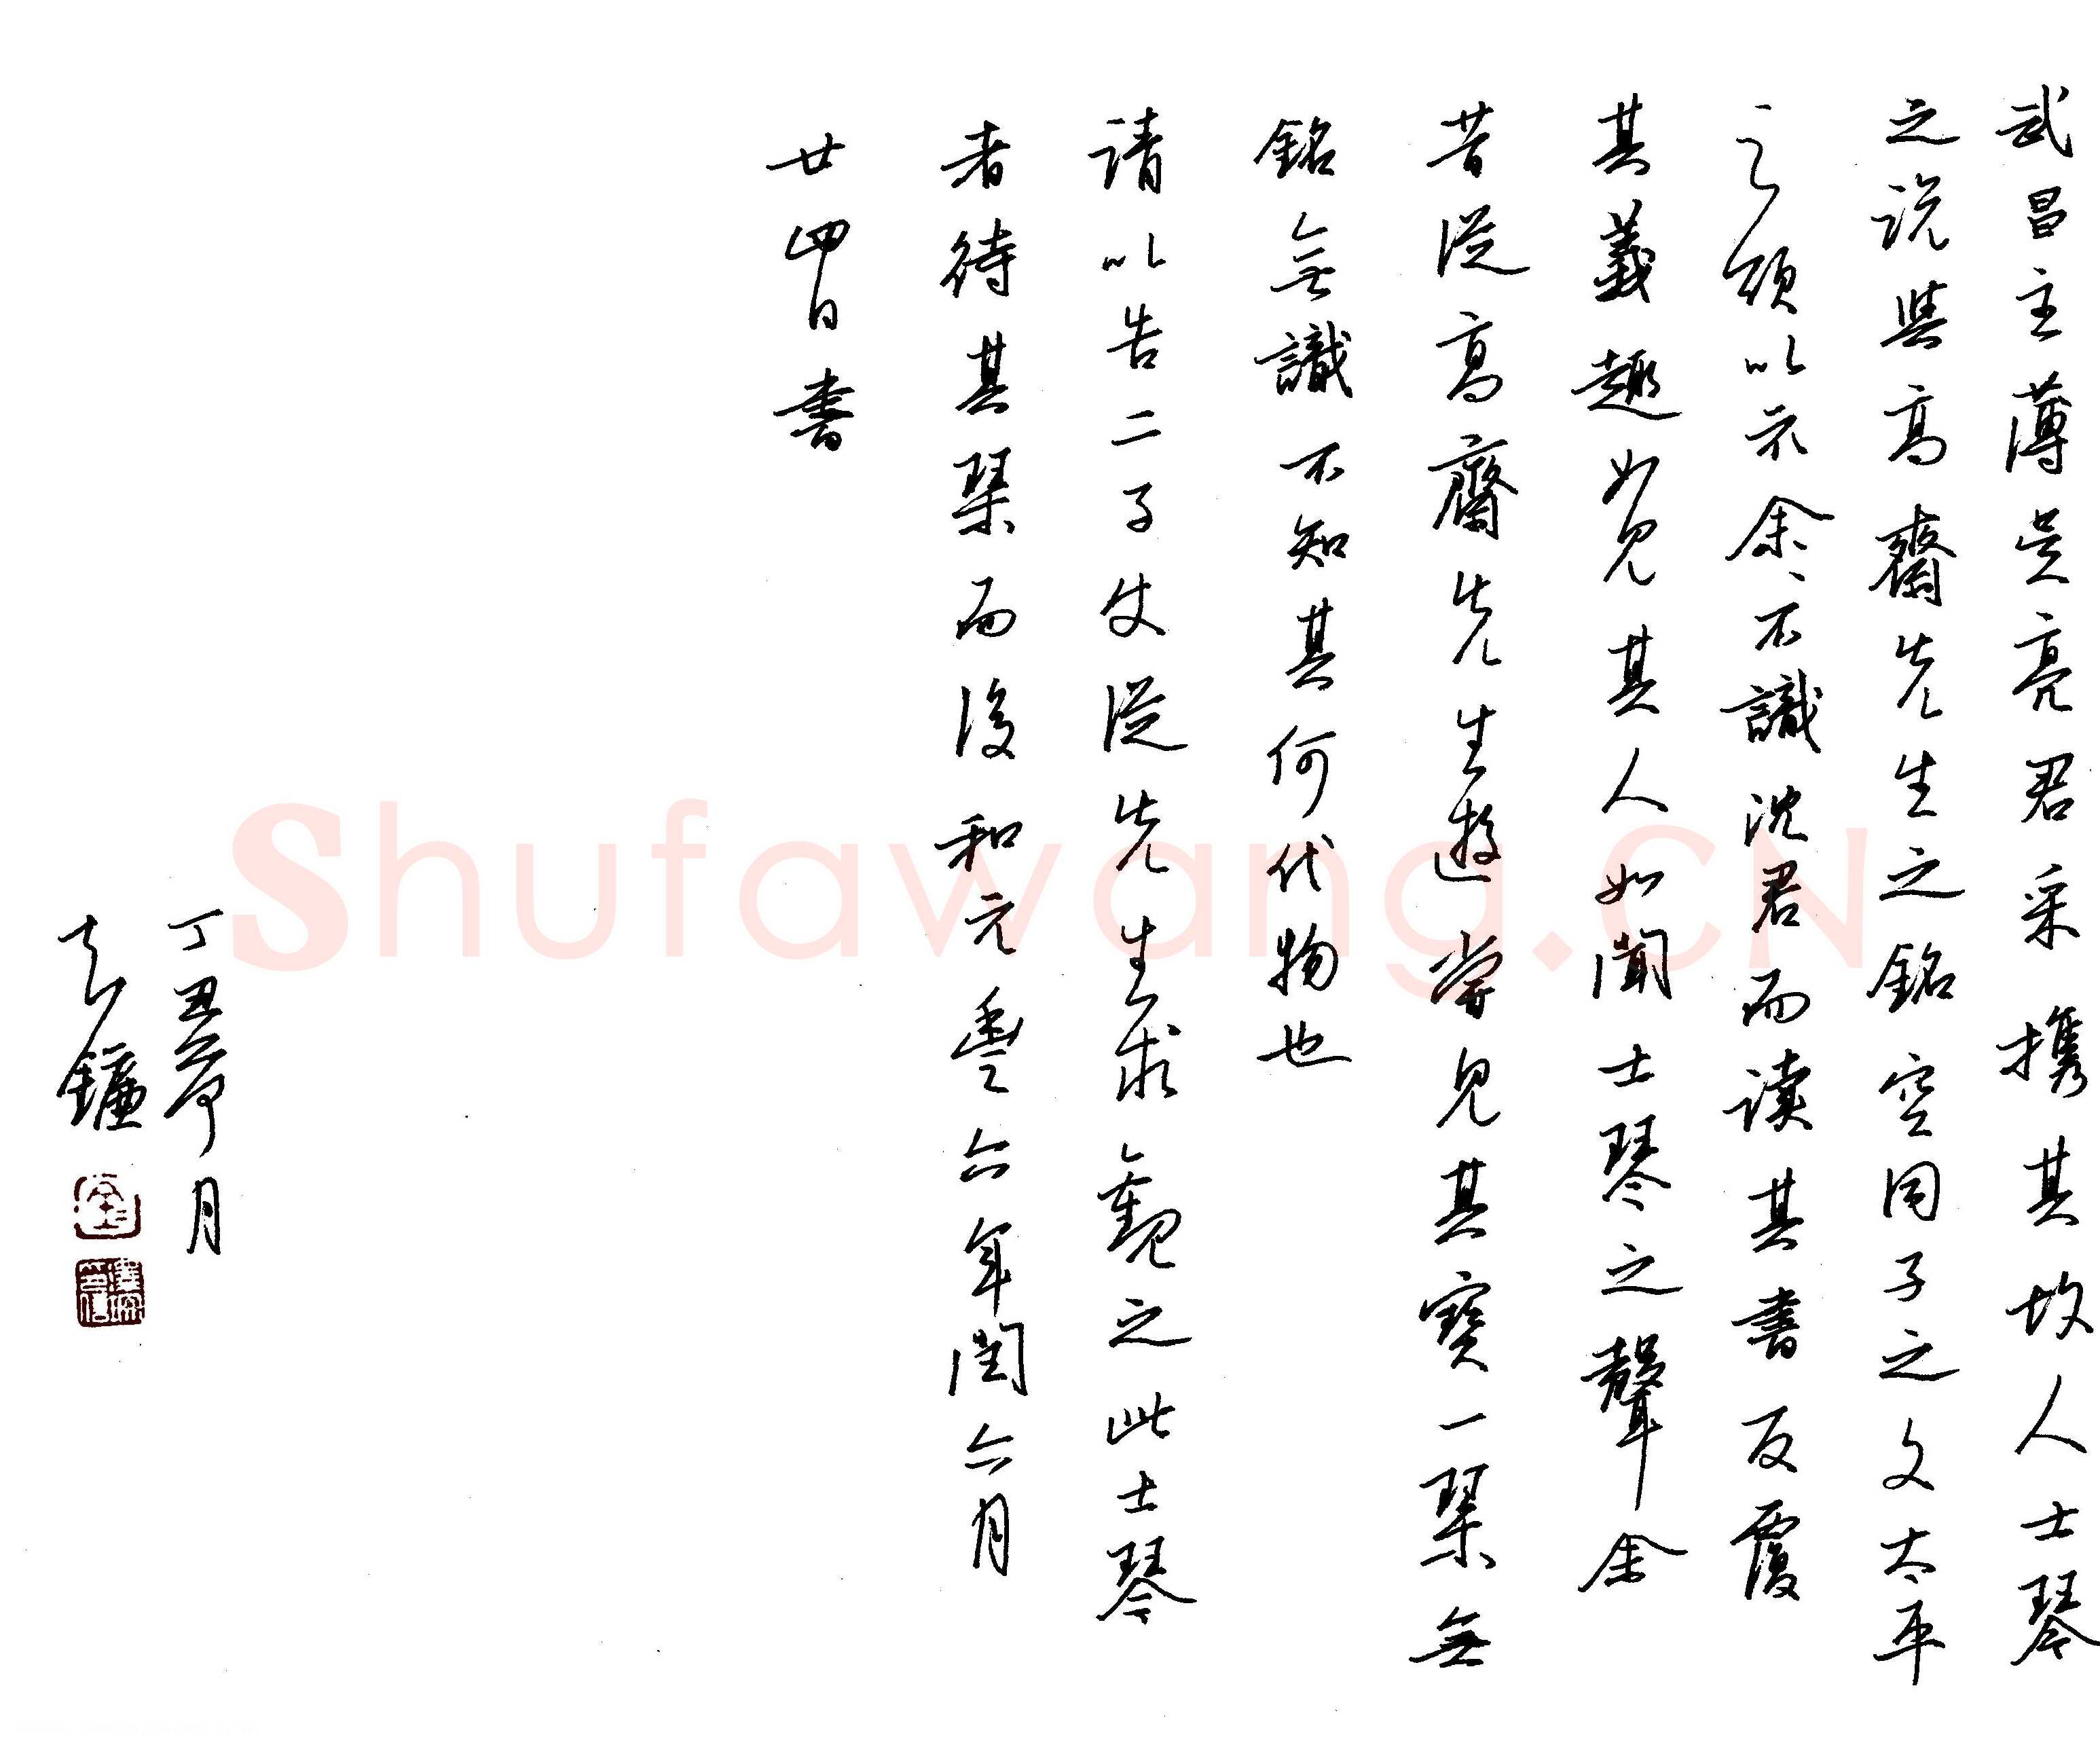 武昌主薄吴亮君采攜其故人士琴
之説與高齋先生之銘空同子之文太平
之頌以示余余不識沈君而读其書反覆
其義趣如見其人如聞士琴之聲余
昔從高齋先生遊嘗見其寳一琴無
銘無識不知其何代物也
请以告二子使從先生求觀之此士琴
者待其琴而後和元豐六年閏六月
廿四日書
丁丑 月
Shufawang.CN